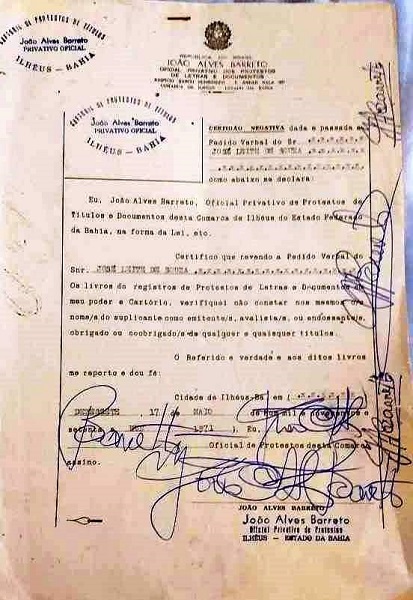 CARTORIO DE PROTESTOS DE TITULOS
João Alves Barreto
PRIVATIVO OFICIAL
ILHÉUS - BAHIA
REPUBLICA DO BRASIL
JOÃO ALVES BARRETO
OFICIAL PRIVATIVO DOS PROTESTOS
DE LETRAS E DOCUMENTOS
CARTORIO DE PROTESTOS DE TITULOS
João Alves Barreto
PRIVATIVO OFICIAL
ILHÉUS - BAHIA
CERTIDÃO NEGATIVA dada e passada a
Pedido Verbal do Sr
JOSÉ LEITH DE SOUZA
como abaixo se declara:
Eu, João Alves Barreto, Oficial Privativo de Protestos de
Títulos e Documentos desta Comarca de Ilhéus do Estado Federado
da Bahia, na forma da Lei, etc.
Certifico que revendo a Pedido Verbal do
Snr. JOSÉ LEITH DE SOUZA
Os livros de registros de Protestos de Letras e Documentos em
meu poder e Cartório, verifiquei não constar nos mesmos o
nome/s do suplicante como emitente/s, avalista/s, ou endossante/s,
obrigado ou coobrigado/s de qualquer e quaisquer titulos.
O Referido é verdade e aos ditos livros
me reporto e dou fé:
Cidade de Ilhéus-Ba em (
17 de MAIO de Hum mil e novecentos e
setenta 1971 ) Eu,
Oficial de Protestos desta Comarca
assino.
JOÃO ALVES BARRETO
João Alves Barreto
Oficial Privativo de Protestos
ILHÉUS - ESTADO DA BAHIA